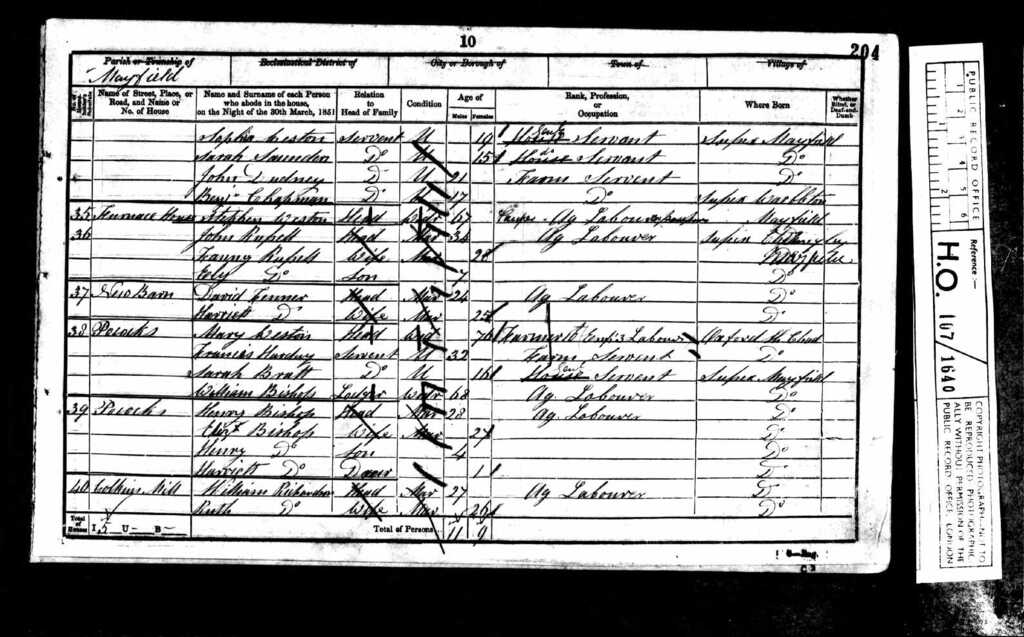 10
204
Parish or Township of
Ecclesiastical District of
City or Borough of
Town of
Village of
Mayfield
Name of Street, Place, or Road, and Name or No. of House
Name and Surname of each Person who abode in the house, on the Night of the 30th March, 1851
Relation to Head of Family
Condition
Age of
Males
Females
Rank, Profession, or Occupation
Where Born
Whether Blind, or Deaf-and-Dumb
Weston Servent U 19 House Servant Mayfield
Sarah Saunders Do U 15 House Servant Do
John Dudney D U 21 Farm Servent Do
Benj Chapman D U 17 Do
35 Furnace House Stephen Weston Head Widr 67 Ag Labourer Mayfield
36 John Head Mar 34 Ag Labourer
Fanny Wife Mar 28
Do Son 7 Do
37 New Barn David Fenner Head Mar 24 Ag Labourer Do
Harriett D Wife Mar 25 Do
38 Peiocks Mary Weston Head Wid 76 Farmer
Francis Servent U 32 Farm Servent Do
Sarah Bratt Do U 16 House Servent Mayfield
William Bishop Lodger Widr 68 Ag Labourer Do
39 Peiocks Henry Bishop Head Mar 28 Ag Labourer Do
Elizt Bishop Wife Mar 27 Do
Henry Do Son 4 Do
Harriett Do Daur 1 Do
40 Collins Mill William Richardson Head Mar 27 Ag Labourer Do
Ruth Do Wife Mar 26 Do
Total of Houses
I 5 U — B —
Total of Persons
11 9
PUBLIC RECORD OFFICE
1 2 3 4 5 6
1 2
Reference :-
H.O. 107/1640
COPYRIGHT PHOTOGRAPH—NOT TO BE REPRODUCED PHOTOGRAPHICALLY WITHOUT PERMISSION OF THE PUBLIC RECORD OFFICE, LONDON